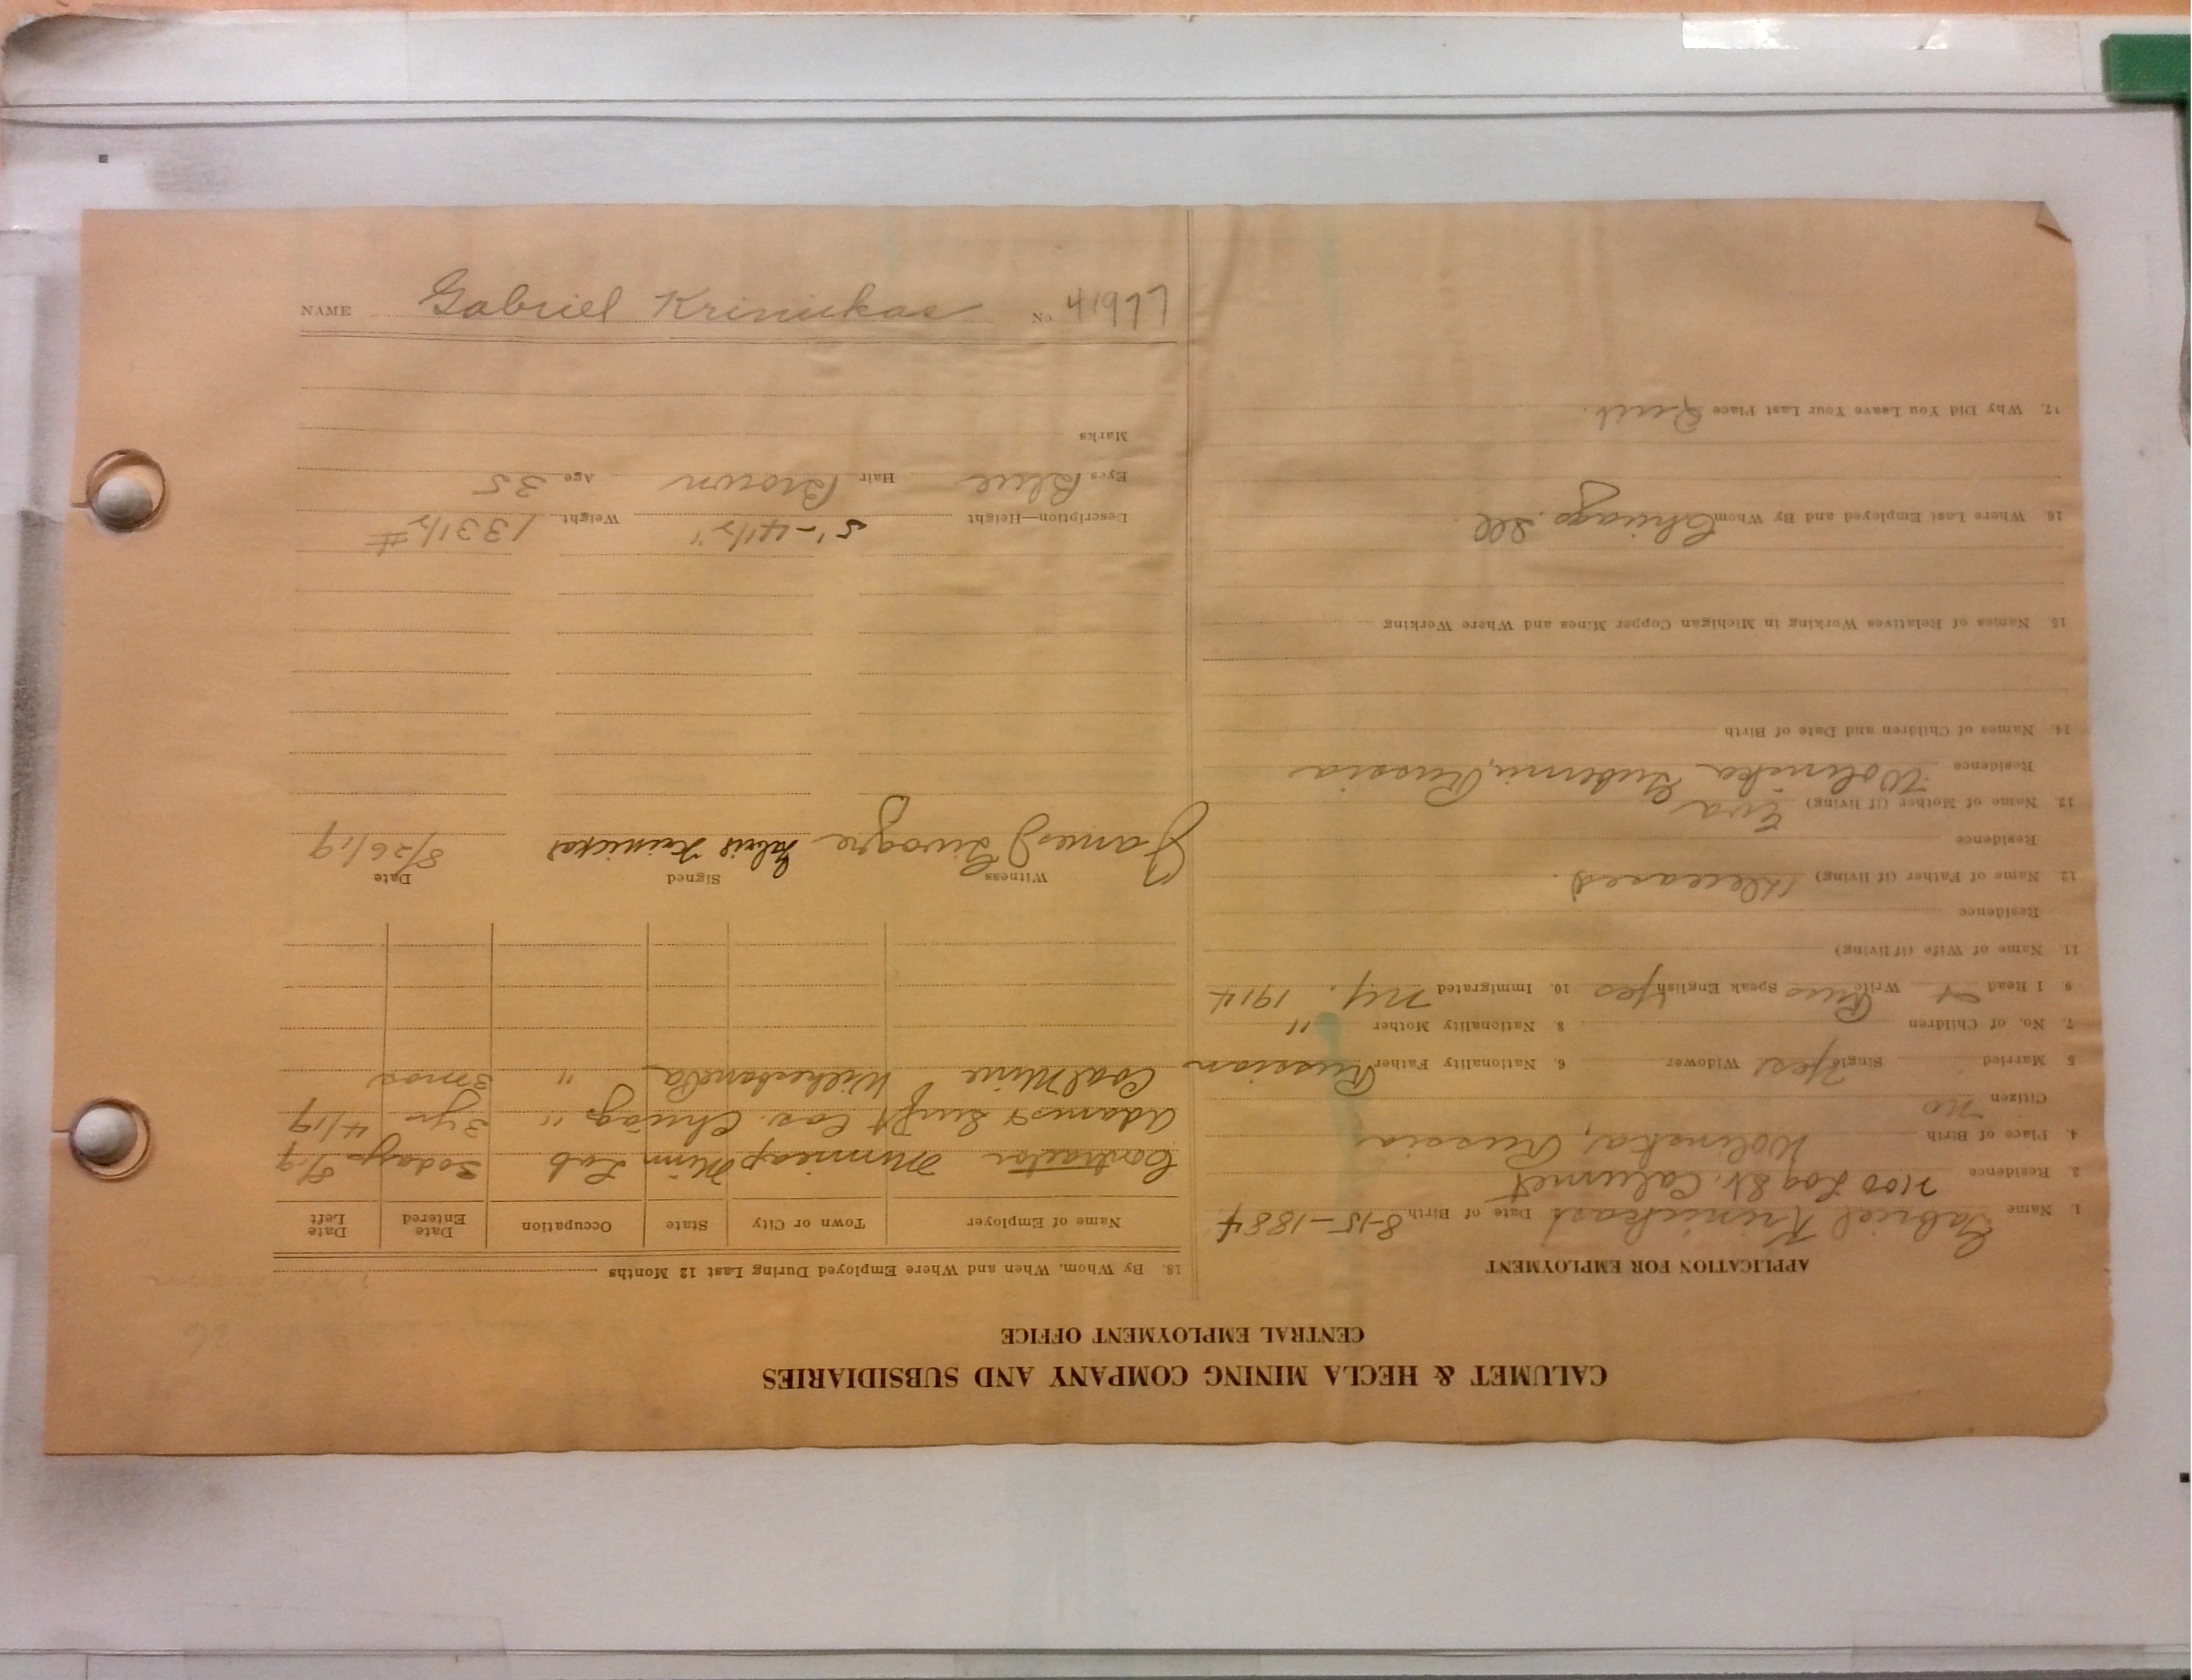 CALUMET & HECLA MINING COMPANY AND SUBSIDIARIES
CENTRAL EMPLOYMENT OFFICE
APPLICATION FOR EMPLOYMENT
1. Name Gabriel Krinickas Date of Birth 8-15-1884
2. Residence 2100 Log St. Calumet
4. Place of Birth Wolinska, Russia
Citizen No
5 Married Single Yes Widower 6. Nationality Father Russian
7. No. of Children 8. Nationality Mother "
9 I Read & Write Rus Speak English Yes 10. Immigrated N.Y. 1914
11. Name of Wife (if living)
Residence
12. Name of Father (if living) Deceased.
Residence
13. Name of Mother (if living) Eva
Residence Wolinska Gubernia, Russia
14. Names of Children and Date of Birth
15. Names of Relatives Working in Michigan Copper Mines and Where Working
16. Where Last Employed and By Whom Chicago. Ill
17. Why Did You Leave Your Last Place Quit.
18. By Whom, When and Where Employed During Last 12 Months
Name of Employer Town or City State Occupation Date Entered Date Left
Contractor Minneap Minn Lab 30 days 8/19
Adams & Swift Cos. Chicago " 3 yr 4/19
Coal Mine Pa " 3 mos
Witness Signed Date
James Krinickas 8/26/19
Description—Height 5'-4 1/2" Weight 133 1/2 #
Eyes Blue Hair Brown Age 35
Marks
NAME Gabriel Krinickas No 41977